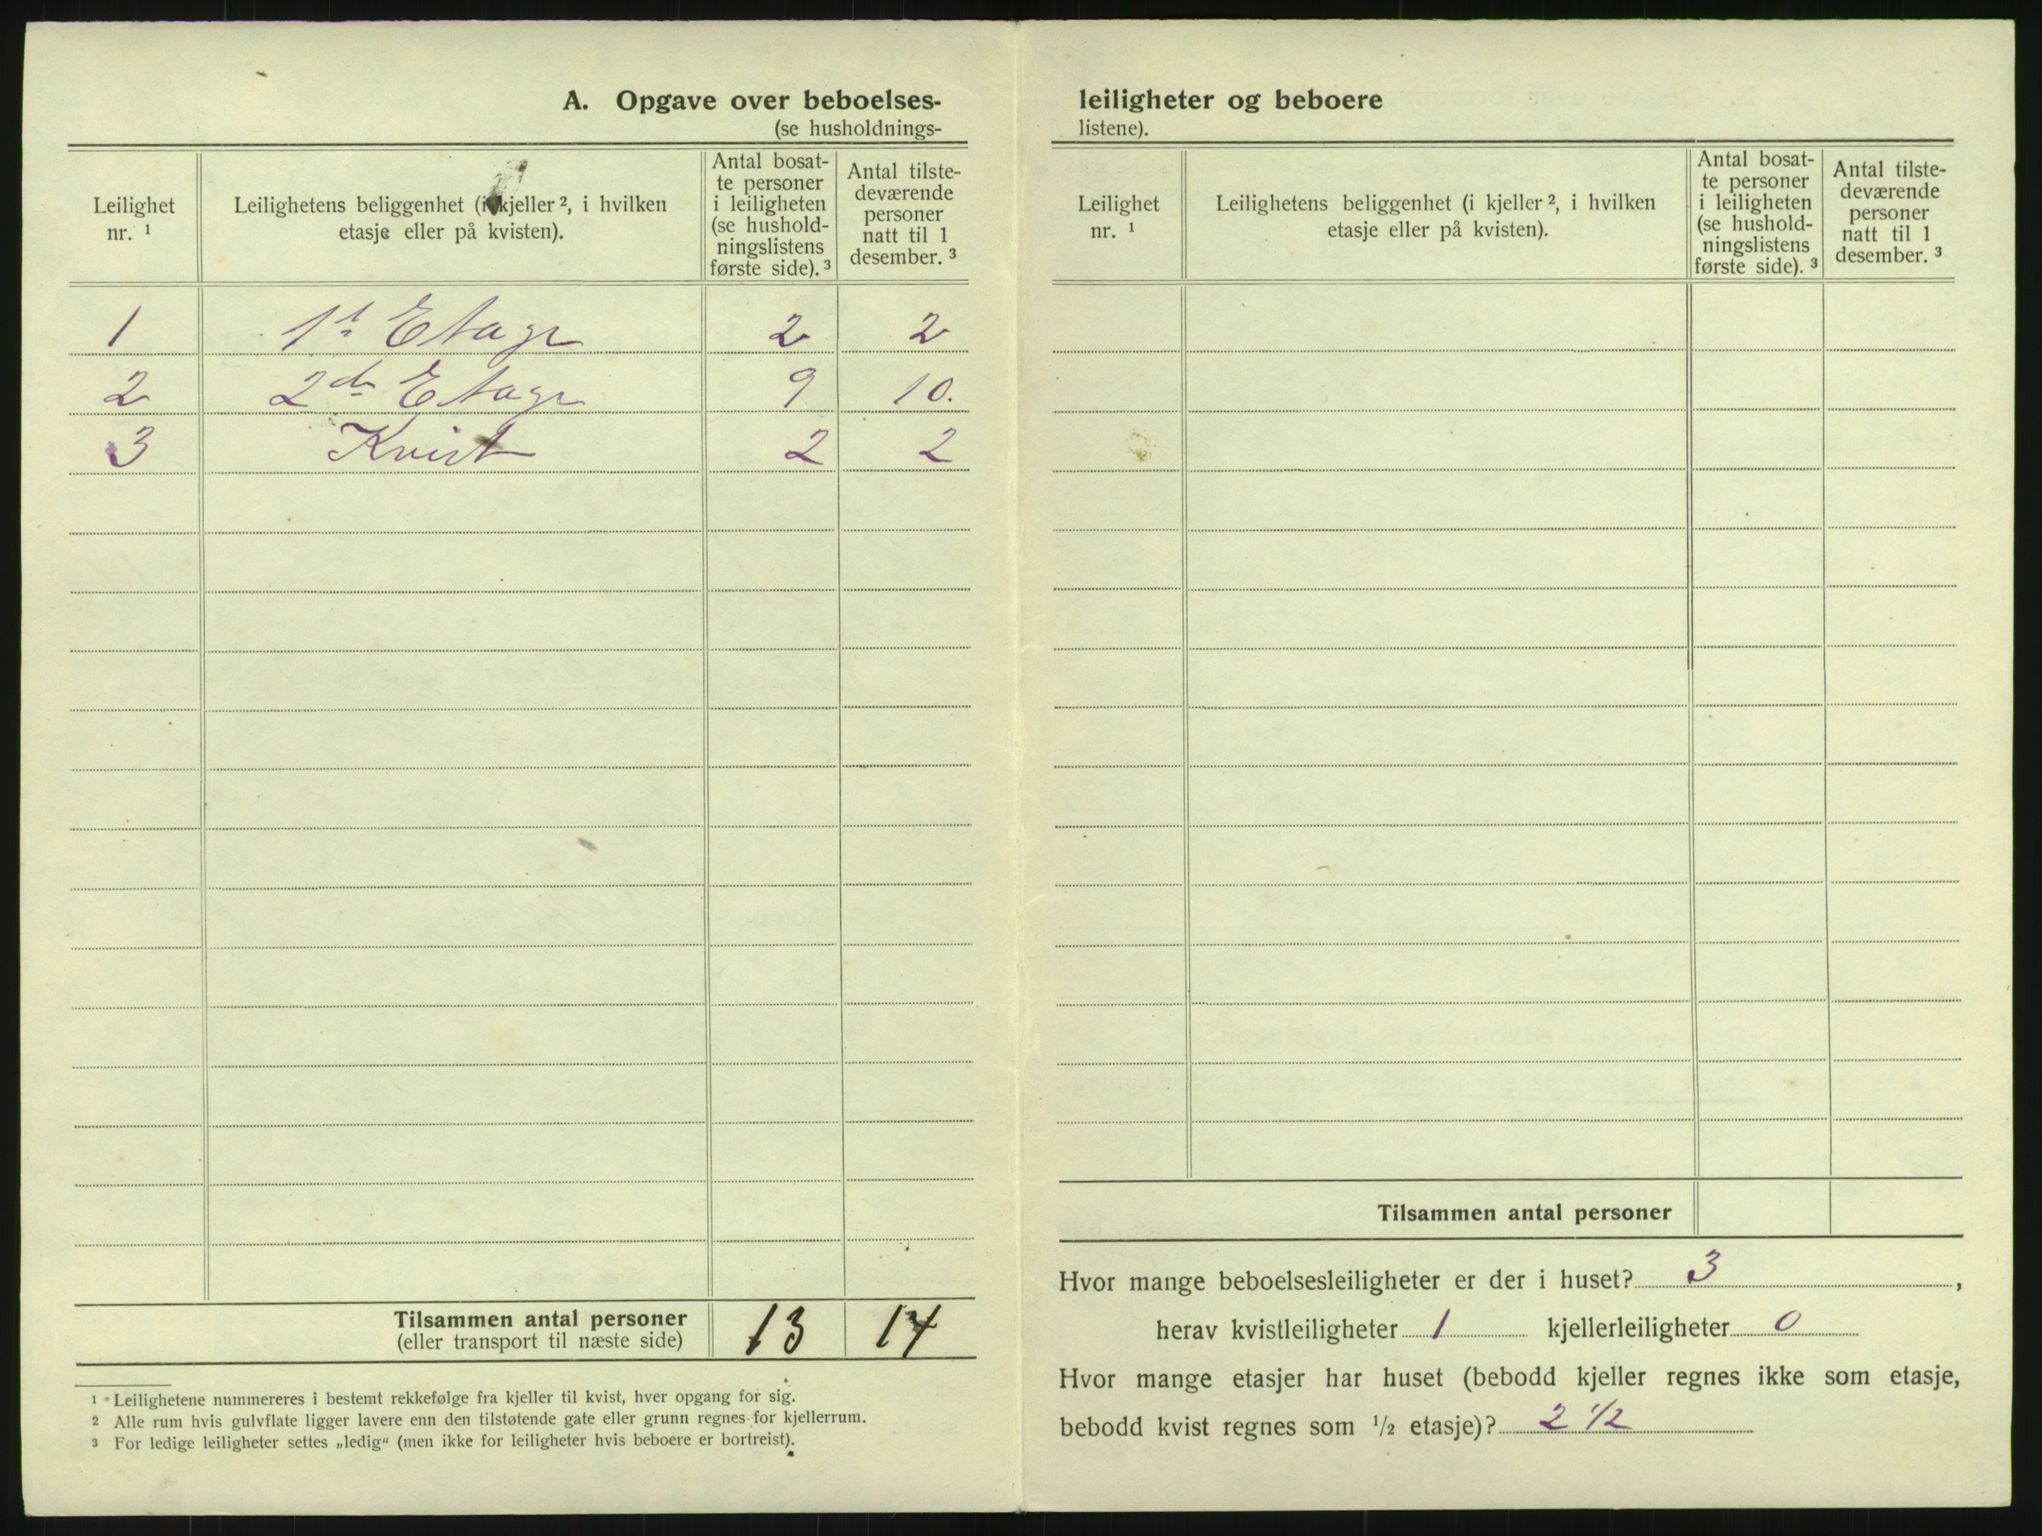 A. Opgave over beboelses-
(se husholdnings-
Leilighet
nr. ¹
Leilighetens beliggenhet (i kjeller ², i hvilken
etasje eller på kvisten).
Antal bosat-
te personer
i leiligheten
(se hushold-
ningslistens
første side). ³
Antal tilste-
deværende
personer
natt til 1
desember. ³
1 1ste Etage 2 2
2 2den Etage 9 10.
3 Kvist 2 2
Tilsammen antal personer 13 14
(eller transport til næste side)
¹ Leilighetene nummereres i bestemt rekkefølge fra kjeller til kvist, hver opgang for sig.
² Alle rum hvis gulvflate ligger lavere enn den tilstøtende gate eller grunn regnes for kjellerrum.
³ For ledige leiligheter settes „ledig“ (men ikke for leiligheter hvis beboere er bortreist).
leiligheter og beboere
listene).
Leilighet
nr. ¹
Leilighetens beliggenhet (i kjeller ², i hvilken
etasje eller på kvisten).
Antal bosat-
te personer
i leiligheten
(se hushold-
ningslistens
første side). ³
Antal tilste-
deværende
personer
natt til 1
desember. ³
Tilsammen antal personer
Hvor mange beboelsesleiligheter er der i huset? 3 ,
herav kvistleiligheter 1 kjellerleiligheter 0
Hvor mange etasjer har huset (bebodd kjeller regnes ikke som etasje,
bebodd kvist regnes som ½ etasje)? 2 ½